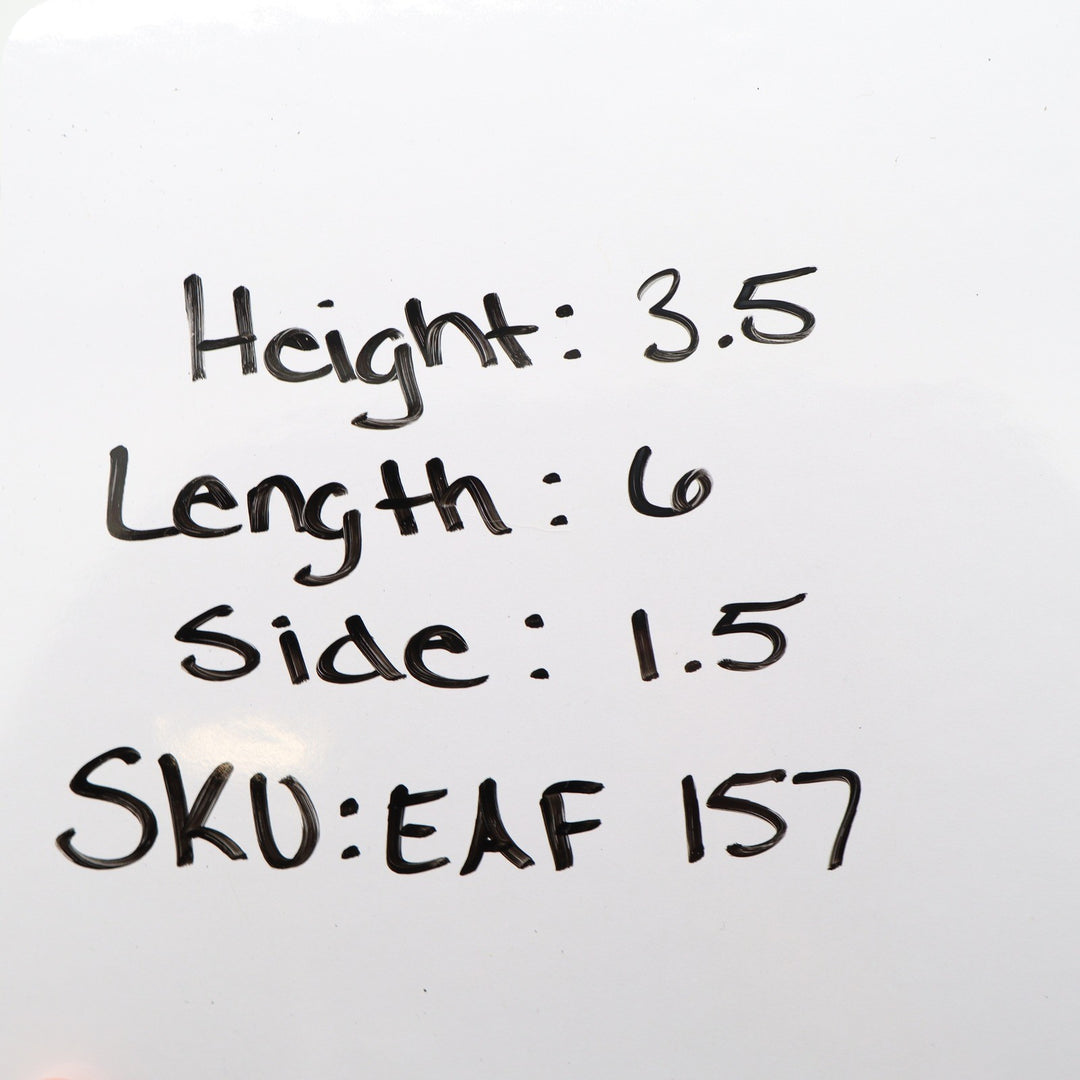 Height: 3.5
Length: 6
Side: 1.5
SKU: EAF 157